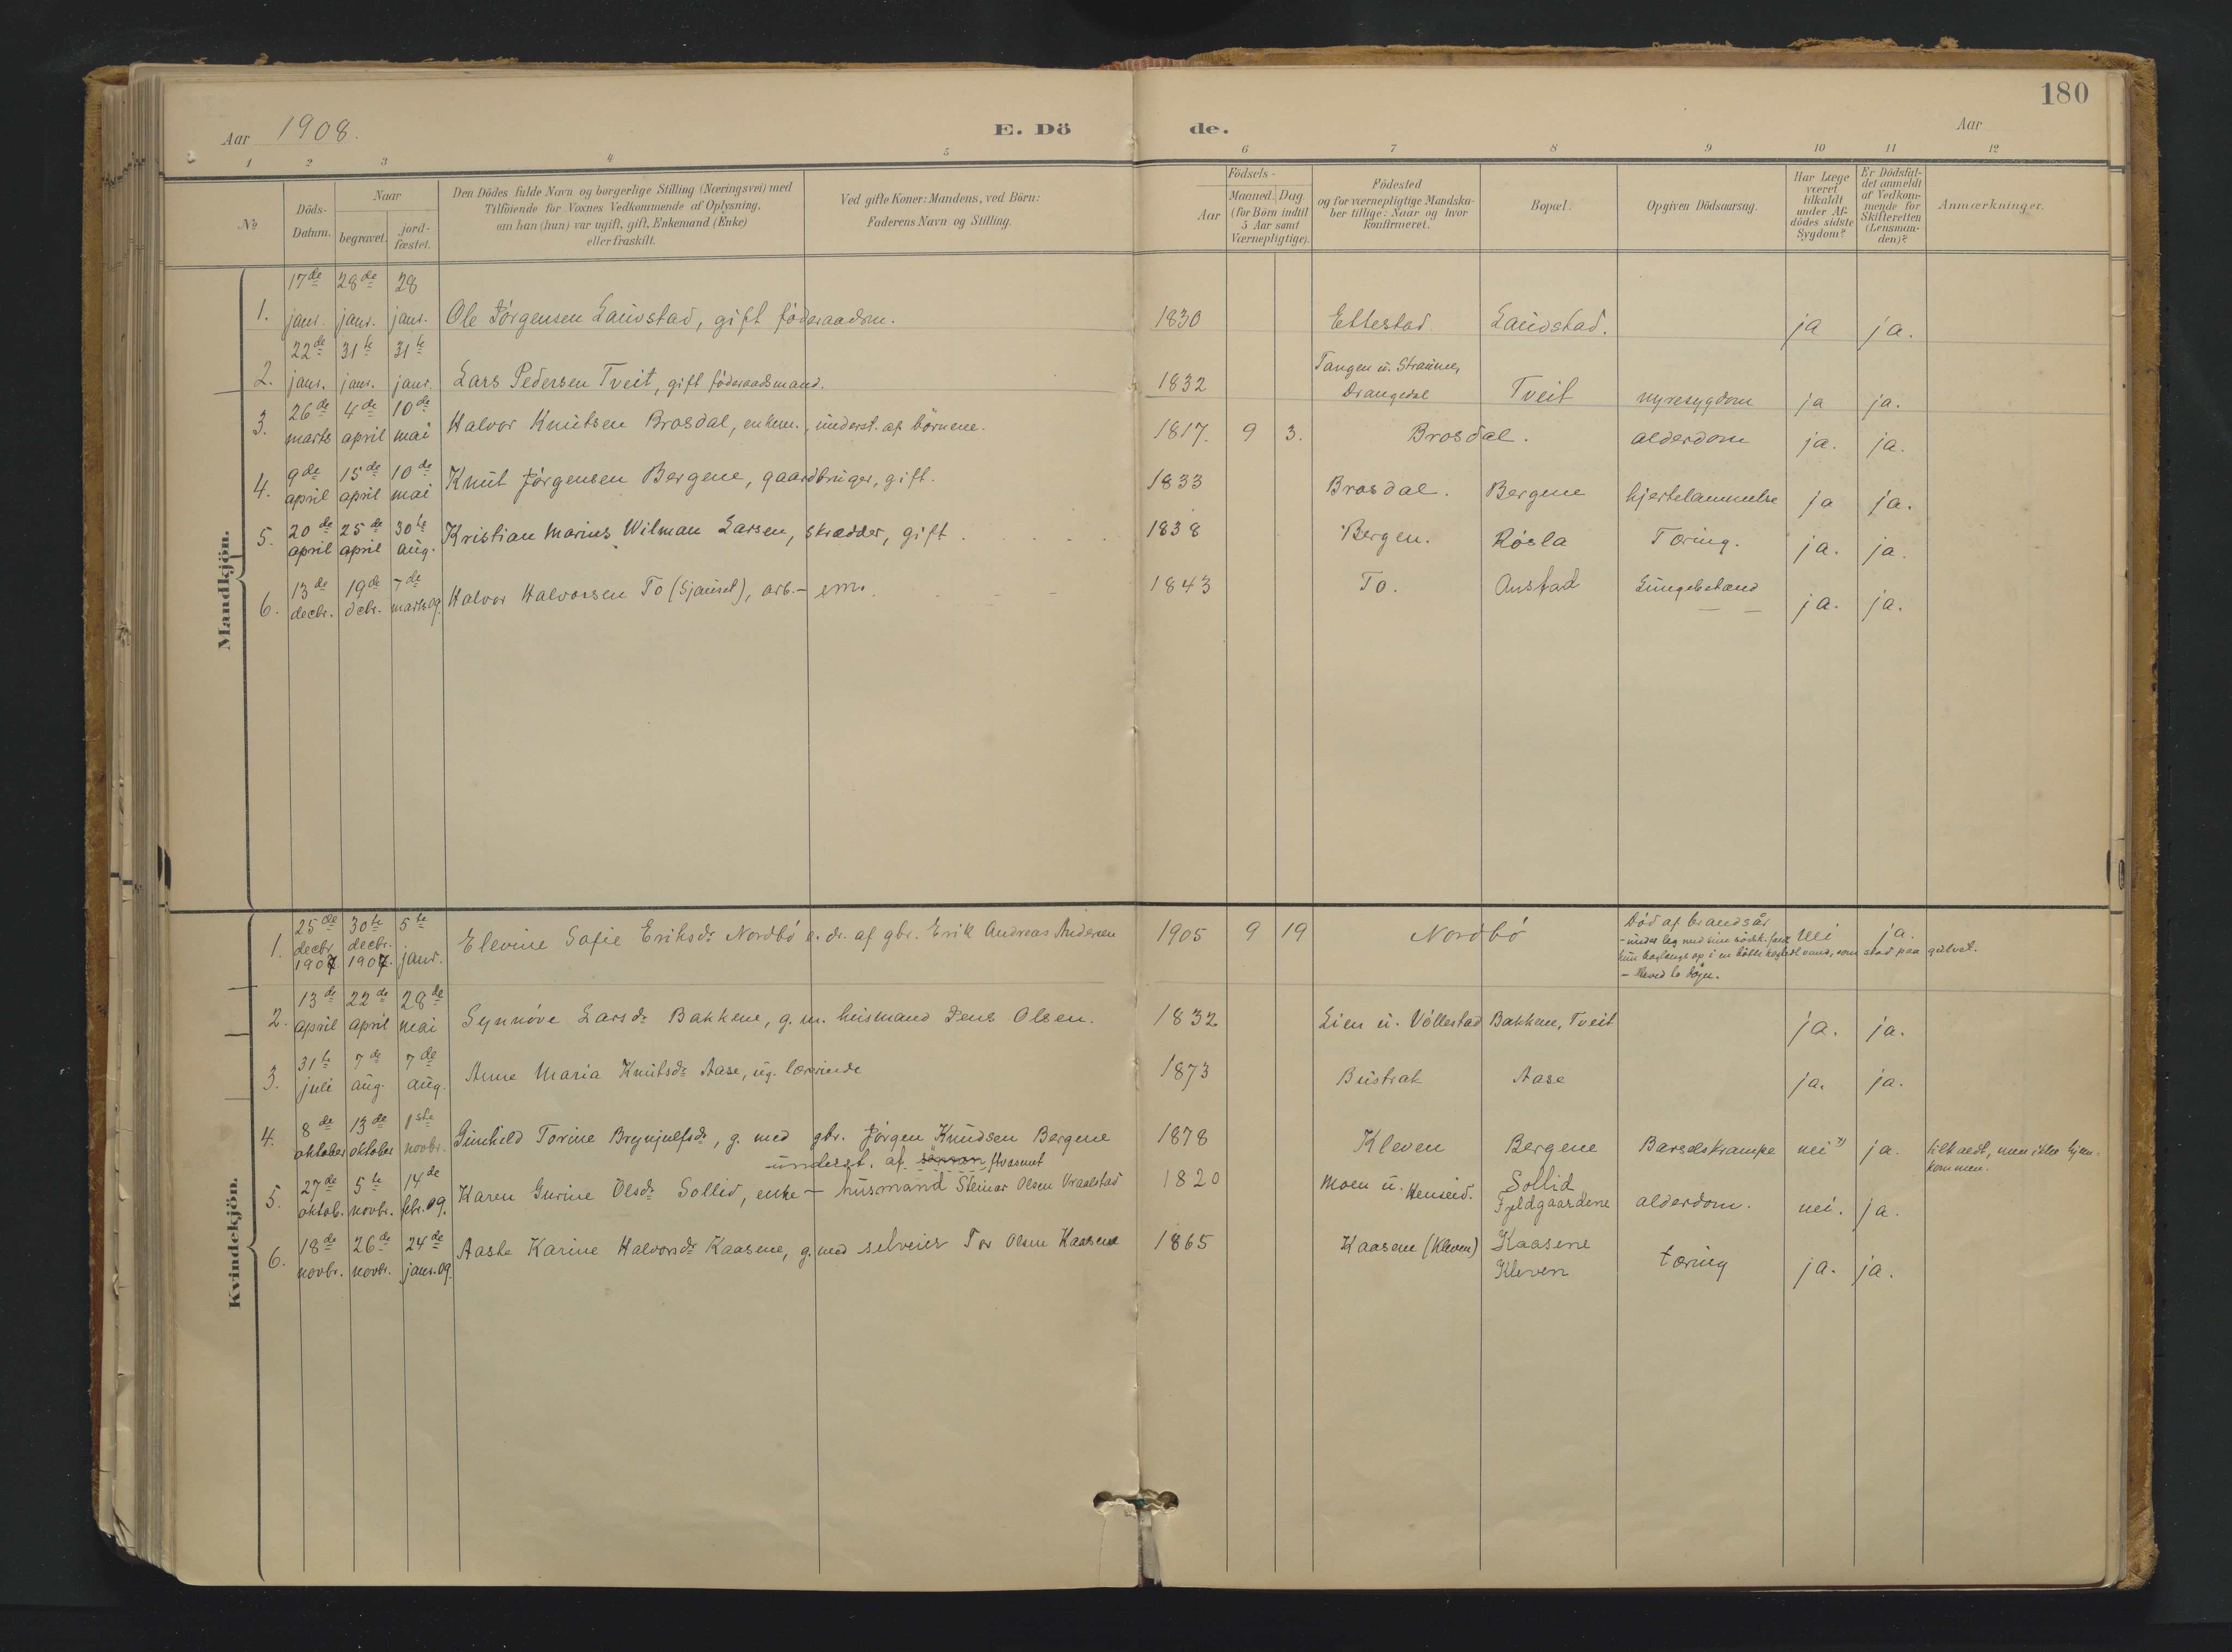 180
Aar 1908.
E. Dö de.
Aar
1 2 3 4 5 6 7 8 9 10 11 12
No
Döds-Datum.
Naar
begravet.
jord-fæstet.
Den Dödes fulde Navn og borgerlige Stilling (Næringsvei) med
Tilföiende for Voxnes Vedkommende af Oplysning,
om han (hun) var ugift, gift, Enkemand (Enke)
eller fraskilt.
Ved gifte Koner: Mandens, ved Börn:
Faderens Navn og Stilling.
Födsels-
Aar
Maaned. Dag.
(for Börn indtil
5 Aar samt
Værnepligtige).
Födested
og for værnepligtige Mandska-
ber tillige: Naar og hvor
konfirmeret.
Bopæl.
Opgiven Dödsaarsag.
Har Læge
været
tilkaldt
under Af-
dödes sidste
Sygdom?
Er Dödsfal-
det anmeldt
af Vedkom-
mende for
Skifteretten
(Lensman-
den)?
Anmærkninger.
Mandkjön.
17de 28de 28
1. janr. janr. janr. Ole Jörgensen Lauvstad, gift föderaadsm. 1830 Ettestad Lauvstad. ja ja.
22de 31te 31te
2. janr. janr. janr. Lars Pedersen Tveit, gift föderaadsmand. 1832 Tangen u. Straume, Drangedal Tveit nyresygdom ja ja.
26de 4de 10de
3. marts april mai Halvor Knutsen Brosdal, enkem., underst. af börnene. 1817. 9 3. Brosdal. alderdom ja. ja.
9de 15de 10de
4. april april mai Knut Jörgensen Bergene, gaardbruger, gift. 1833 Brosdal. Bergene hjertelammelse ja ja.
20de 25de 30te
5. april april aug. Kristian Marius Wilman Larsen, skrædder, gift 1838 Bergen. Rösla Tæring. ja. ja.
13de 19de 7de
6. decbr. dcbr. marts 09. Halvor Halvorsen To (Sjauset), arb. - em. 1843 To. Austad Lungebetænd ja. ja.
Kvindekjön.
25de 30te 5te
1. decbr. 1907 decbr. 1907. janr. Elevine Sofie Eriksdr Nordbö e. dr. af gbr. Erik Andreas Andersen 1905 9 19 Nordbö Död af brandsår nei ja.
- under leg med sine södsk. faldt
hun baglengs op i en bötte koghedt vand, som stod paa gulvet.
- Leved to dögn.
13de 22de 28de
2. april april mai Synnöve Larsdr Bakkene, g. m. husmand Jens Olsen. 1832 Lien u. Völlestad Bakkene, Tveit ja. ja.
31te 7de 7de
3. juli aug. aug. Anne Maria Knutsdr Aase, ug. lærerinde 1873 Bustrak Aase ja. ja.
8de 13de 1ste
4. oktober oktober novbr. Gunhild Torine Brynjulfsdr, g. med gbr. Jörgen Knudsen Bergene 1878 Kleven Bergene Barselskrampe nei ja. tilkaldt, men ikke hjem-
kommen.
underst. af
27de 5te 14de
5. oktob. novbr. febr. 09. Karen Gurine Olsdr Sollid, enke - husmand Steinar Olsen Vraalstad 1820 Moen u. Heneid. Sollid Fjeldgaardene alderdom. nei. ja.
18de 26de 24de
6. novbr. novbr. janr. 09. Aaste Karine Halvorsdr Kaasene, g. med selveier Tor Olsen Kaasene 1865 Kaasene (Kleven) Kaasene Kleven tæring ja. ja.